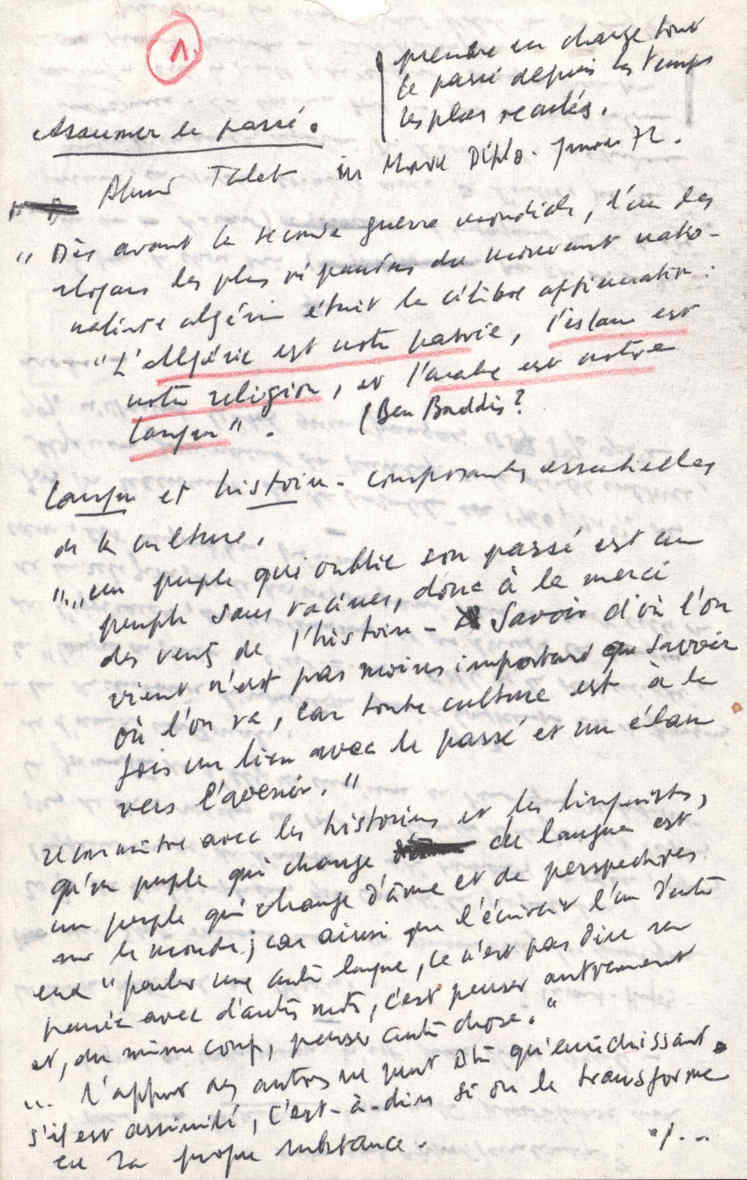 1.
prendre en charge tout
le passé depuis les temps
les plus reculés.
Assumer le passé.
Ahmed Taleb in Monde Diplo. Janvier 72.
"Dès avant la seconde guerre mondiale, l'un des
slogans les plus répandus du mouvement natio-
naliste algérien était la célèbre affirmation :
"L'Algérie est notre patrie, l'islam est
notre religion, et l'arabe est notre
langue". (Ben Baddis ?
Langue et histoire - composantes essentielles
de la culture.
"... un peuple qui oublie son passé est un
peuple sans racines, donc à la merci
des vents de l'histoire - Savoir d'où l'on
vient n'est pas moins important que savoir
où l'on va, car toute culture est à la
fois un lien avec le passé et un élan
vers l'avenir."
reconnaître avec les historiens et les linguistes,
qu'un peuple qui change de langue est
un peuple qui change d'âme et de perspectives
sur le monde ; car ainsi que l'écrivait l'un d'entre
eux "parler une autre langue, ce n'est pas dire sa
pensée avec d'autres mots, c'est penser autrement
et, du même coup, penser autre chose."
... l'apport des autres ne peut être qu'enrichissant
s'il est assimilé, c'est-à-dire si on le transforme
en sa propre substance.
./...